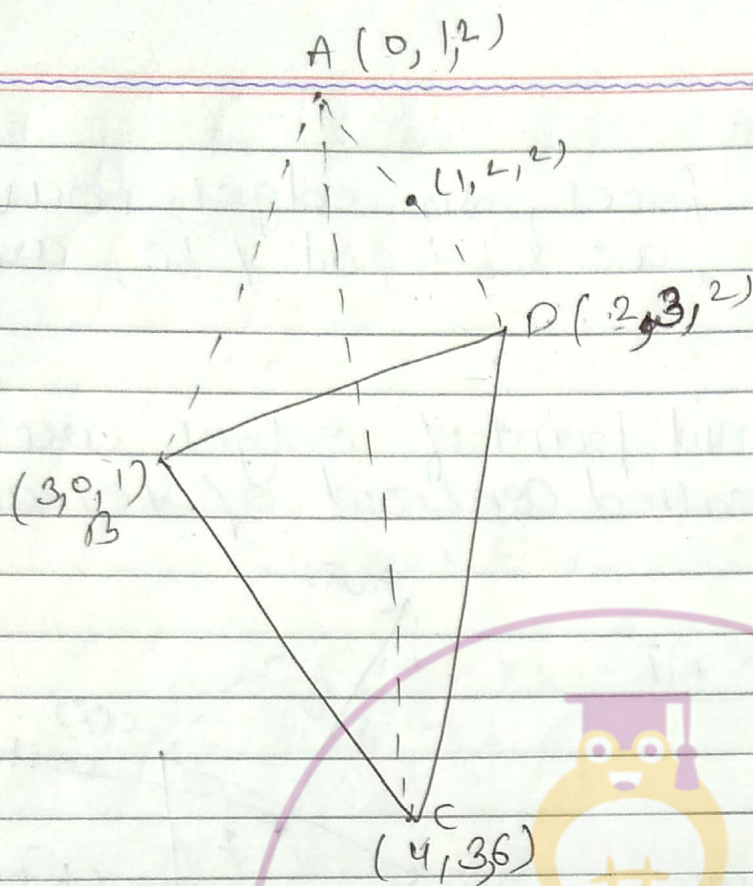 A (0, 1, 2)
(1, 2, 2)
D (2, 3, 2)
(3, 0, 1)
B
C
(4, 3, 6)